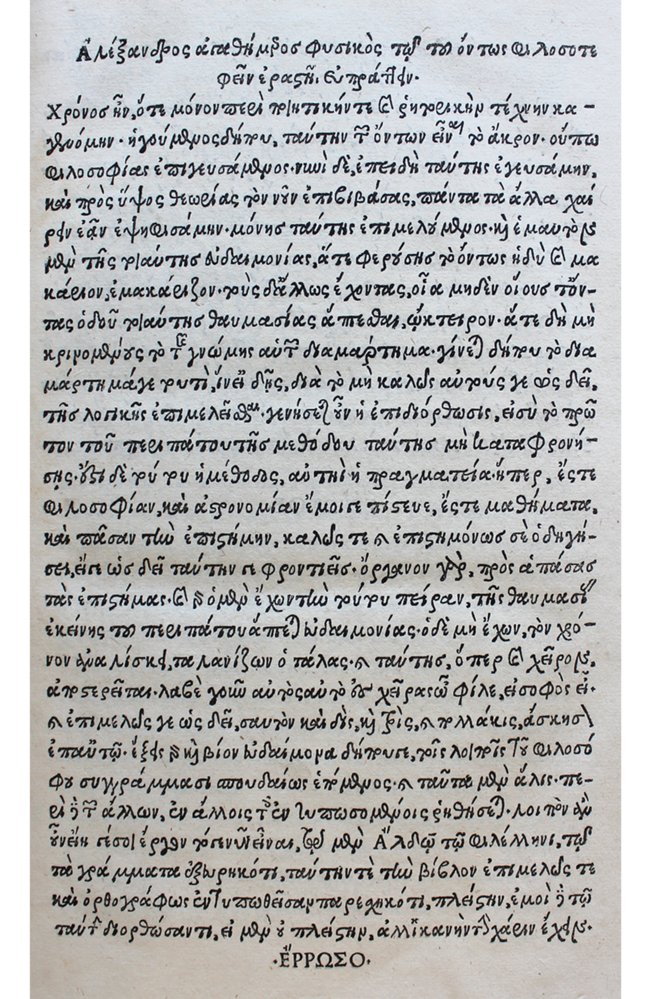 Ἀλέξανδρος ἀγαθήμερος φυσικὸς τῷ τοῦ ὄντως φιλοσοτε
φεῖν ἐραστῇ. εὐπράττειν.
Χρόνος ἦν, ὅτε μόνον περὶ ποιητικήν τε καὶ ῥητορικὴν τέχνην κα-
μενος δήπου, ταύτην τῶν ὄντων εἶναι τὸ ἄκρον. οὔπω
φιλοσοφίας ἐπιγευσάμενος. νυνὶ δὲ, ἐπειδὴ ταύτης ἐγευσάμην,
καὶ πρὸς ὕψος θεωρίας τὸν νῦν ἐπιβιβάσας, πάντα τὰ ἄλλα χαί
ρειν ἐᾶν ἐψηφισάμην. μόνης ταύτης ἐπιμελούμενος. καὶ ἐμαυτὸν
μὲν τῆς τοιαύτης εὐδαιμονίας, ἅτε φερούσης τὸ ὄντως ἡδὺ καὶ μα
κάριον, ἐμακάριζον. τοὺς δ᾽ ἄλλως ἔχοντας, οἷα μηδὲν οἵους τ᾽ ὄν-
τας ὁδοῦ τοιαύτης θαυμασίας ἅπτεσθαι, ᾤκτειρον. ἅτε δὴ μὴ
κρινομένους τὸ τῆς γνώμης αὐτῶν διαμάρτημα. γίνεται δήπου τὸ δια
μάρτημά γε τουτὶ, διὰ τὸ μὴ καλῶς αὐτούς γε ὡς δεῖ,
τῆς λογικῆς ἐπιμελεῖσθαι. γενήσεται οὖν ἡ ἐπιδιόρθωσις, εἰ σὺ τὸ πρῶ
τον τοῦ περιπάτου τῆς μεθόδου ταύτης μὴ καταφρονή-
σῃς. ἔστι δὲ τούτου ἡ μέθοδος, αὐτηὶ ἡ πραγματεία. ἥπερ, ἔς τε
φιλοσοφίαν, καὶ ἀστρονομίαν ἔμοιγε πίστευε, ἔς τε μαθήματα,
καὶ πᾶσαν τὴν ἐπιστήμην, καλῶς τε καὶ ἐπιστημόνως σὲ ὁδηγή-
σει, εἴγε ὡς δεῖ ταύτην σε φροντιεῖς. ὄργανον γὰρ, πρὸς ἁπάσας
τὰς ἐπιστήμας. καὶ ὁ μὲν ἔχων τὴν τούτου πεῖραν, τῆς θαυμασί
ἐκείνης τοῦ περιπάτου ἅπτεται εὐδαιμονίας. ὁ δὲ μὴ ἔχων, τὸν χρό-
νον ἀναλίσκει, ταλανίζων ὁ τάλας. καὶ ταύτης, ὅπερ καὶ χεῖρον,
ἀποστερεῖται. λαβὲ γοῦν αὐτὸς αὐτὸ εἰς χεῖρας ὦ φίλε, εἰ σοφὸς εἶ.
καὶ ἐπιμελῶς γε ὡς δεῖ, σαυτὸν καὶ δὶς, καὶ τρὶς, καὶ πολλάκις, ἄσκησον
ἐπ᾽ αὐτῷ. ἕξεις γὰρ καὶ βίον εὐδαίμονα δήπου γε, τοῖς λοιποῖς τοῦ φιλοσό
φου συγγράμμασι σπουδαίως ἑπόμενος. καὶ ταῦτα μὲν ἅλις. πε-
ρὶ δὲ τῶν ἄλλων, ἐν ἄλλοις τῶν ἐντυπωσομένοις ῥηθήσεται. λοιπὸν ἂν
οὖν εἴη σέο ἔργον μὲν Ἄλδῳ τῷ φιλέλληνι, τῷ
τὰ γράμματα ἐξευρηκότι, ταύτην τὲ τὴν βίβλον ἐπιμελῶς τε
καὶ ὀρθογράφως ἐντυπωθεῖσαν παρεχηκότι, πλείστην, ἐμοὶ δὲ τῷ
ταύτην διορθώσαντι, εἰ μὲν οὐ πλείστην, ἀλλ᾽ ἱκανὴν τὴν χάριν ἔχειν.
·ἜΡΡΩΣΟ·